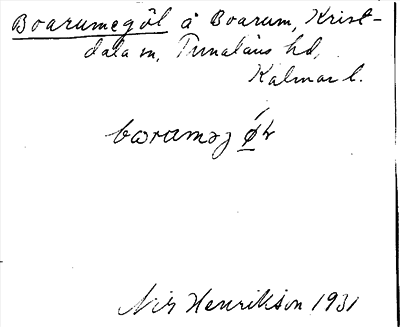 Boarumegöl å Boarum, Krist-
dala sn, Tunaläns hd,
Kalmar l.
Nils Henrikson 1931